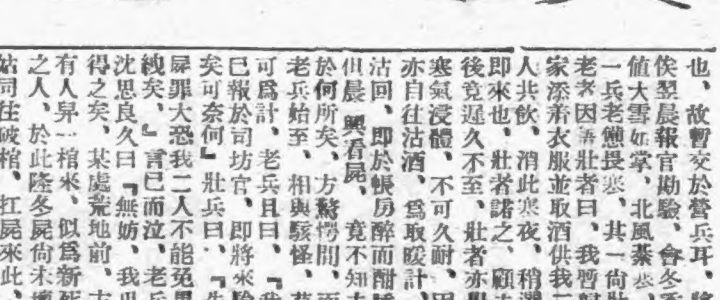 也、故暫交於營兵耳、
俟翌晨報官勘驗、會冬
值大雪如掌、北風
一兵老憊畏寒、其一尙壯
老者因語壯者曰、我暫
家添着衣服並取酒供我二
人共飲、消此寒夜、稍
卽來也、壯者諾之、顧
後竟遲久不至、壯者亦
寒氣浸體、不可久耐、因
亦自往沽酒、爲取暖計、
沽回、卽於帳房醉而酣
但晨興看屍、竟不知
於何所矣、方驚愕間、而
老兵始至、相與駭怪、
可爲計、老兵且曰、『
已報於司坊官、卽將來
矣可奈何』壯兵曰、『
屍罪大恐我二人不能免
絏矣、』言已而泣、老兵
沈思良久曰『無妨、我
得之矣、某處荒地前、
有人舁一棺來、似爲新死
之人、於此隆冬屍尙未壞
姑同往破棺、扛屍來此、